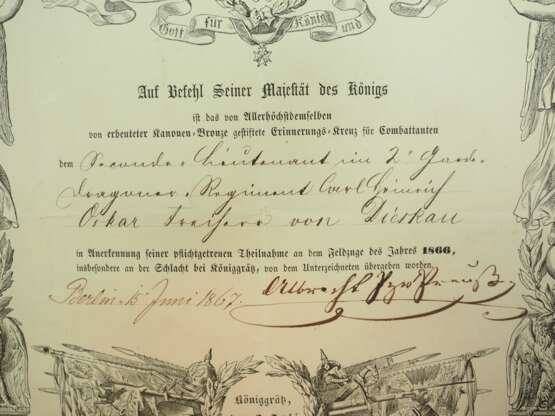 Gott für König und
Auf Befehl Seiner Majestät des Königs
ist das von Allerhöchstdemselben
von erbeuteter Kanonen-Bronze gestiftete Erinnerungs-Kreuz für Combattanten
dem Seconde-Lieutenant im 2. Garde-
Dragoner-Regiment Carl Heinrich
Oskar Freiherr von Dieskau
in Anerkennung seiner pflichtgetreuen Theilnahme an dem Feldzuge des Jahres 1866,
insbesondere an der Schlacht bei Königgrätz, von dem Unterzeichneten übergeben worden.
Berlin Juni 1867. Albrecht Pr v Preuß
Königgrätz,